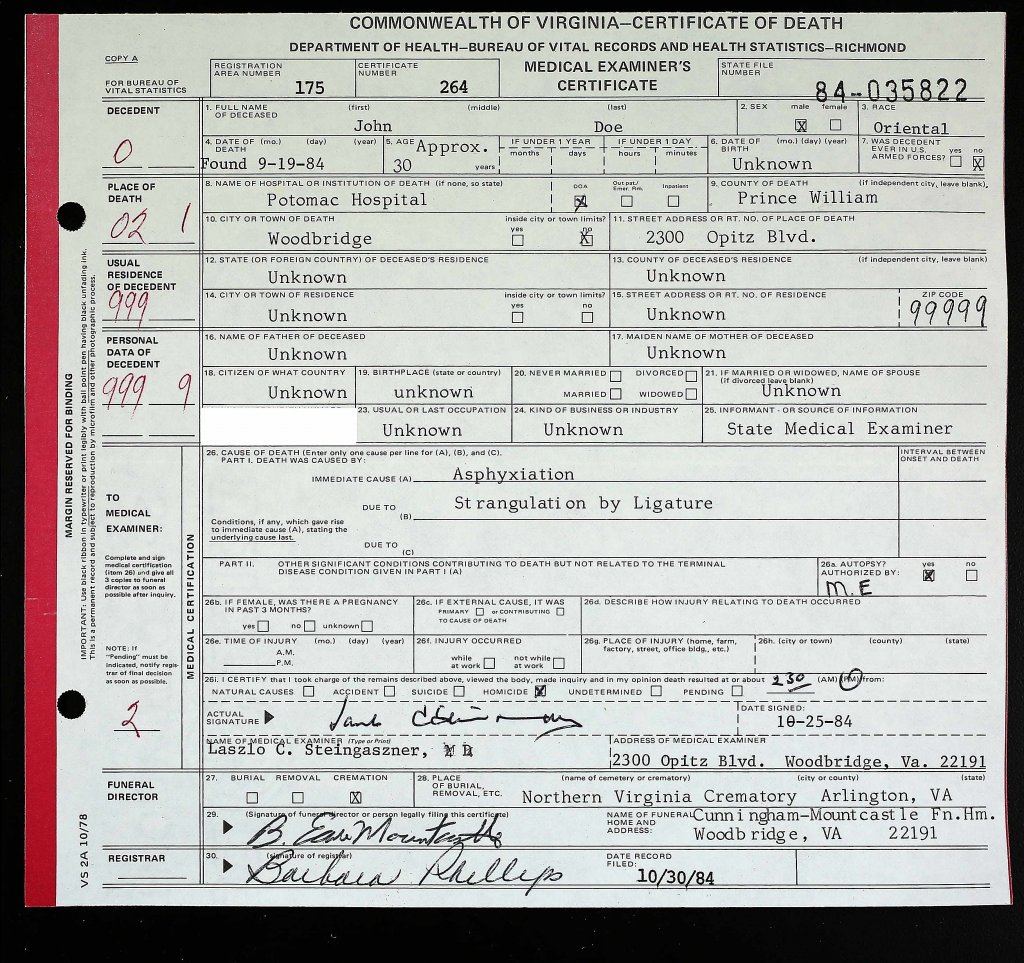 COMMONWEALTH OF VIRGINIA—CERTIFICATE OF DEATH
DEPARTMENT OF HEALTH—BUREAU OF VITAL RECORDS AND HEALTH STATISTICS—RICHMOND
COPY A
FOR BUREAU OF VITAL STATISTICS
REGISTRATION AREA NUMBER 175
CERTIFICATE NUMBER 264
MEDICAL EXAMINER'S CERTIFICATE
STATE FILE NUMBER 84-035822
DECEDENT
0
1. FULL NAME OF DECEASED (first) (middle) (last)
John Doe
2. SEX male female
X
3. RACE
Oriental
4. DATE OF DEATH (mo.) (day) (year)
Found 9-19-84
5. AGE Approx.
30 years
IF UNDER 1 YEAR
months days
IF UNDER 1 DAY
hours minutes
6. DATE OF BIRTH (mo.) (day) (year)
Unknown
7. WAS DECEDENT EVER IN U.S. ARMED FORCES? yes no
X
PLACE OF DEATH
02 1
8. NAME OF HOSPITAL OR INSTITUTION OF DEATH (if none, so state)
Potomac Hospital
DOA Out pat./ Emer. Rm. Inpatient
X
9. COUNTY OF DEATH (if independent city, leave blank)
Prince William
10. CITY OR TOWN OF DEATH inside city or town limits? yes no
Woodbridge X
11. STREET ADDRESS OR RT. NO. OF PLACE OF DEATH
2300 Opitz Blvd.
USUAL RESIDENCE OF DECEDENT
999
12. STATE (OR FOREIGN COUNTRY) OF DECEASED'S RESIDENCE
Unknown
13. COUNTY OF DECEASED'S RESIDENCE (if independent city, leave blank)
Unknown
14. CITY OR TOWN OF RESIDENCE inside city or town limits? yes no
Unknown
15. STREET ADDRESS OR RT. NO. OF RESIDENCE
Unknown
ZIP CODE
99999
PERSONAL DATA OF DECEDENT
999 9
16. NAME OF FATHER OF DECEASED
Unknown
17. MAIDEN NAME OF MOTHER OF DECEASED
Unknown
18. CITIZEN OF WHAT COUNTRY
Unknown
19. BIRTHPLACE (state or country)
unknown
20. NEVER MARRIED DIVORCED
MARRIED WIDOWED
21. IF MARRIED OR WIDOWED, NAME OF SPOUSE
(if divorced leave blank)
Unknown
23. USUAL OR LAST OCCUPATION
Unknown
24. KIND OF BUSINESS OR INDUSTRY
Unknown
25. INFORMANT - OR SOURCE OF INFORMATION
State Medical Examiner
MARGIN RESERVED FOR BINDING
IMPORTANT: Use black ribbon in typewriter or print legibly with ball point pen having black unfading ink.
This is a permanent record and subject to reproduction by microfilm and other photographic process.
VS 2A 10/78
TO MEDICAL EXAMINER:
Complete and sign medical certification (item 26) and give all 3 copies to funeral director as soon as possible after inquiry.
NOTE: If "Pending" must be indicated, notify registrar of final decision as soon as possible.
2
MEDICAL CERTIFICATION
26. CAUSE OF DEATH (Enter only one cause per line for (A), (B), and (C).
PART I. DEATH WAS CAUSED BY:
INTERVAL BETWEEN ONSET AND DEATH
IMMEDIATE CAUSE (A) Asphyxiation
DUE TO (B) Strangulation by Ligature
Conditions, if any, which gave rise to immediate cause (A), stating the underlying cause last.
DUE TO (C)
PART II. OTHER SIGNIFICANT CONDITIONS CONTRIBUTING TO DEATH BUT NOT RELATED TO THE TERMINAL DISEASE CONDITION GIVEN IN PART I (A)
26a. AUTOPSY? yes no
AUTHORIZED BY: X
M.E
26b. IF FEMALE, WAS THERE A PREGNANCY IN PAST 3 MONTHS?
yes no unknown
26c. IF EXTERNAL CAUSE, IT WAS
PRIMARY or CONTRIBUTING
TO CAUSE OF DEATH
26d. DESCRIBE HOW INJURY RELATING TO DEATH OCCURRED
26e. TIME OF INJURY (mo.) (day) (year)
A.M.
P.M.
26f. INJURY OCCURRED
while at work not while at work
26g. PLACE OF INJURY (home, farm, factory, street, office bldg., etc.)
26h. (city or town) (county) (state)
26i. I CERTIFY that I took charge of the remains described above, viewed the body, made inquiry and in my opinion death resulted at or about 230 (AM) (PM) from:
NATURAL CAUSES ACCIDENT SUICIDE HOMICIDE X UNDETERMINED PENDING
ACTUAL SIGNATURE
DATE SIGNED:
10-25-84
NAME OF MEDICAL EXAMINER (Type or Print)
Laszlo C. Steingaszner, M D
ADDRESS OF MEDICAL EXAMINER
2300 Opitz Blvd. Woodbridge, Va. 22191
FUNERAL DIRECTOR
27. BURIAL REMOVAL CREMATION
X
28. PLACE OF BURIAL, REMOVAL, ETC. (name of cemetery or crematory) (city or county) (state)
Northern Virginia Crematory Arlington, VA
29. (Signature of funeral director or person legally filing this certificate)
NAME OF FUNERAL HOME AND ADDRESS:
Cunningham-Mountcastle Fn.Hm.
Woodbridge, VA 22191
REGISTRAR
30. (signature of registrar)
Barbara Phillips
DATE RECORD FILED:
10/30/84